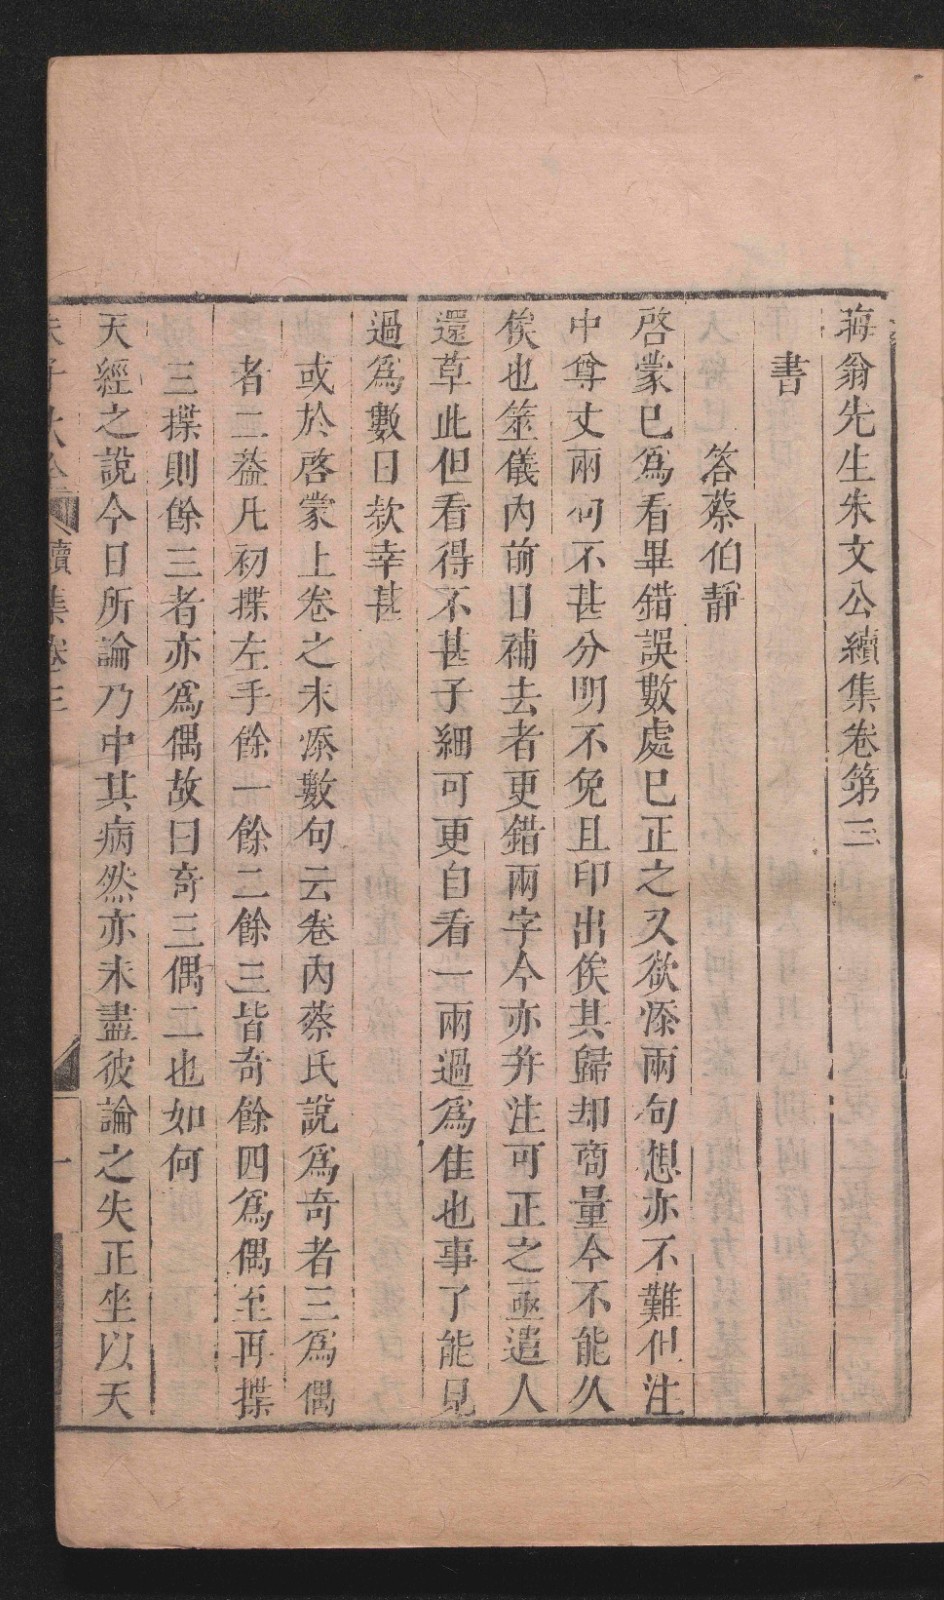 晦翁先生朱文公續集卷第三
書
答蔡伯靜
啓蒙已爲看畢錯誤數處已正之又欲添兩句想亦不難但注
中尊丈兩句不甚分明不免且印出俟其歸却商量今不能久
俟也筮儀內前日補去者更錯兩字今亦并注可正之亟遣人
還草此但看得不甚子細可更自看一兩過爲佳也事了能見
過爲數日款幸甚
或於啓蒙上卷之末添數句云卷內蔡氏說爲奇者三爲偶
者二蓋凡初揲左手餘一餘二餘三皆奇餘四爲偶至再揲
三揲則餘三者亦爲偶故曰奇三偶二也如何
天經之說今日所論乃中其病然亦未盡彼論之失正坐以天
朱子大全 續集卷三 一